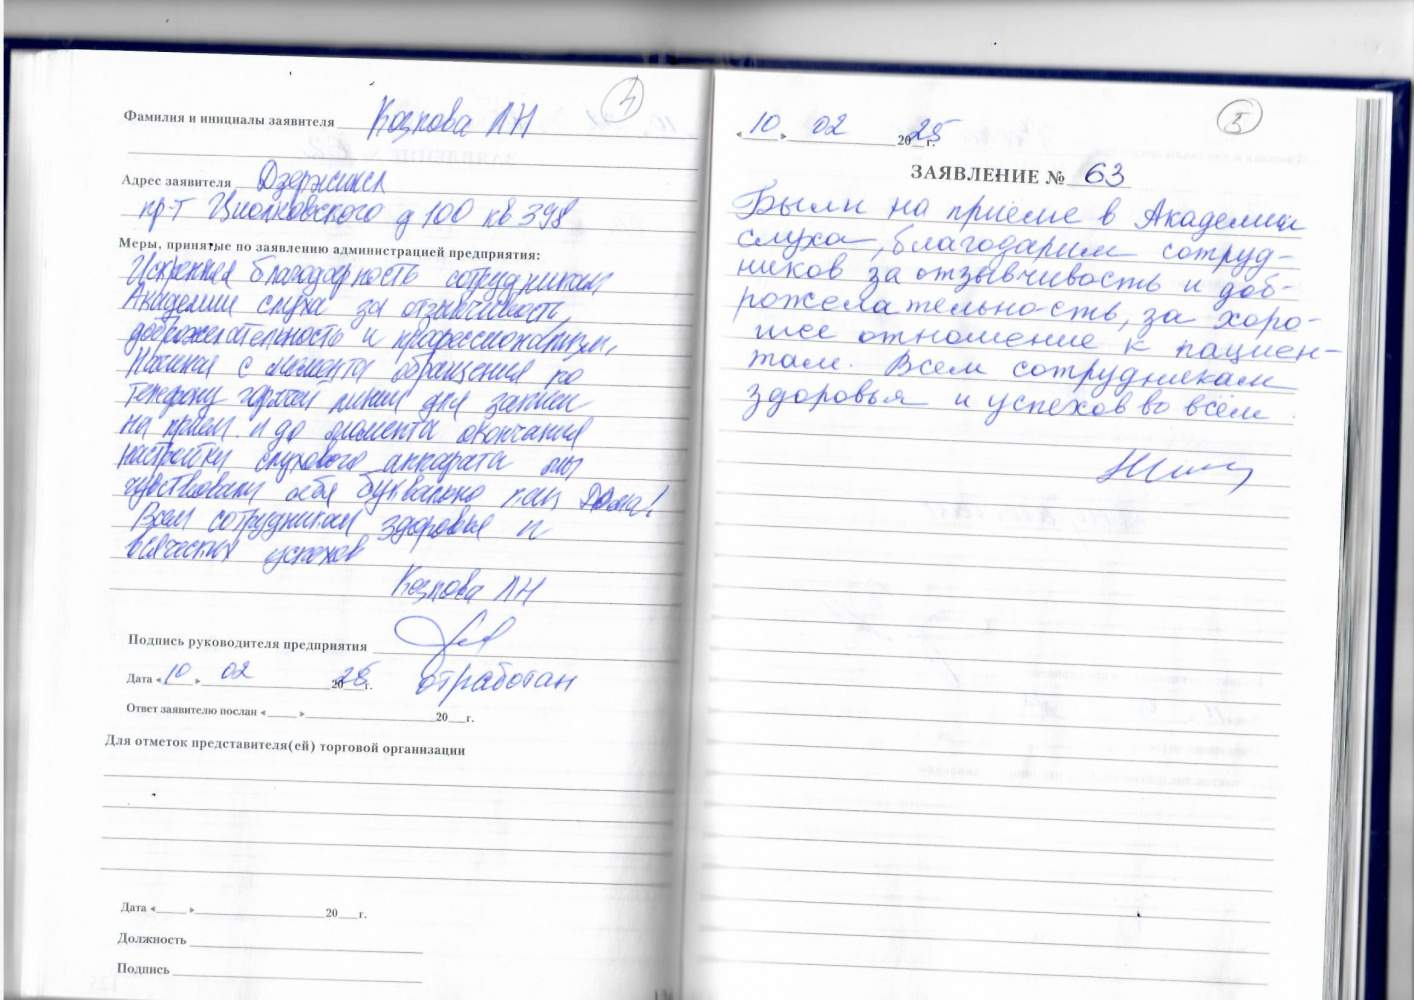 4
Фамилия и инициалы заявителя Козлова ЛН
Адрес заявителя Дзержинск
пр-т Циолковского д 100 кв 398
Меры, принятые по заявлению администрацией предприятия:
Искренняя благодарность сотрудникам
Академии слуха за отзывчивость,
доброжелательность и профессионализм.
Начиная с момента обращения по
телефону горячей линии для записи
на прием и до момента окончания
настройки слухового аппарата мы
чувствовали себя буквально как дома!
Всем сотрудникам здоровья и
всяческих успехов
Козлова ЛН
Подпись руководителя предприятия
Дата «10» 02 2025 г. отработан
Ответ заявителю послан «___» 20__г.
Для отметок представителя(ей) торговой организации
Дата «___» 20__г.
Должность
Подпись
5
«10» 02 2025 г.
ЗАЯВЛЕНИЕ № 63
Были на приёме в Академии
слуха, благодарим сотруд-
ников за отзывчивость и доб-
рожелательность, за хоро-
шее отношение к пациен-
там. Всем сотрудникам
здоровья и успехов во всём.